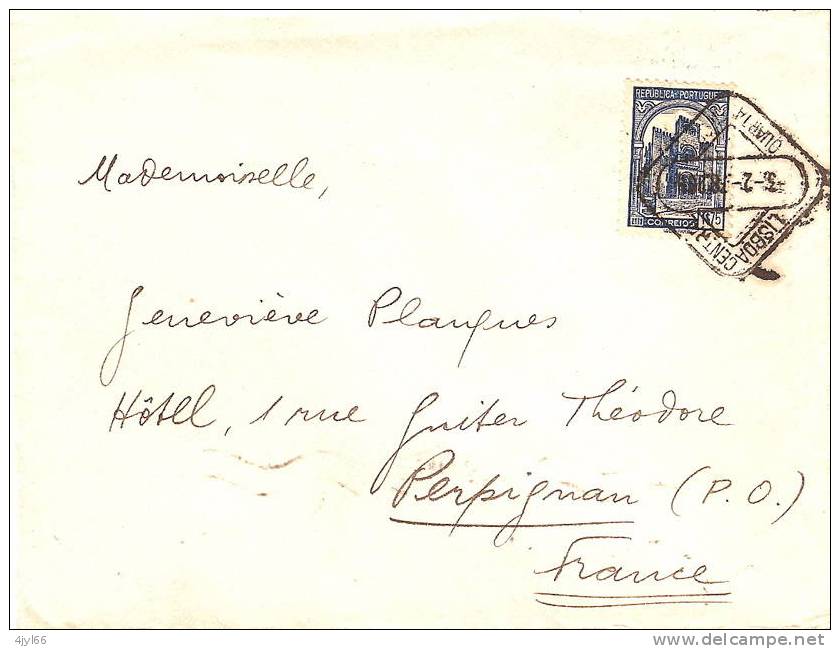 REPÚBLICA PORTUGUE
CORREIOS
QUARTA
LISBOA CENTR
Mademoiselle,
Geneviève Planques
Hôtel, 1 rue Guiter Théodore
Perpignan (P.O.)
France
4jyl66
www.delcampe.net